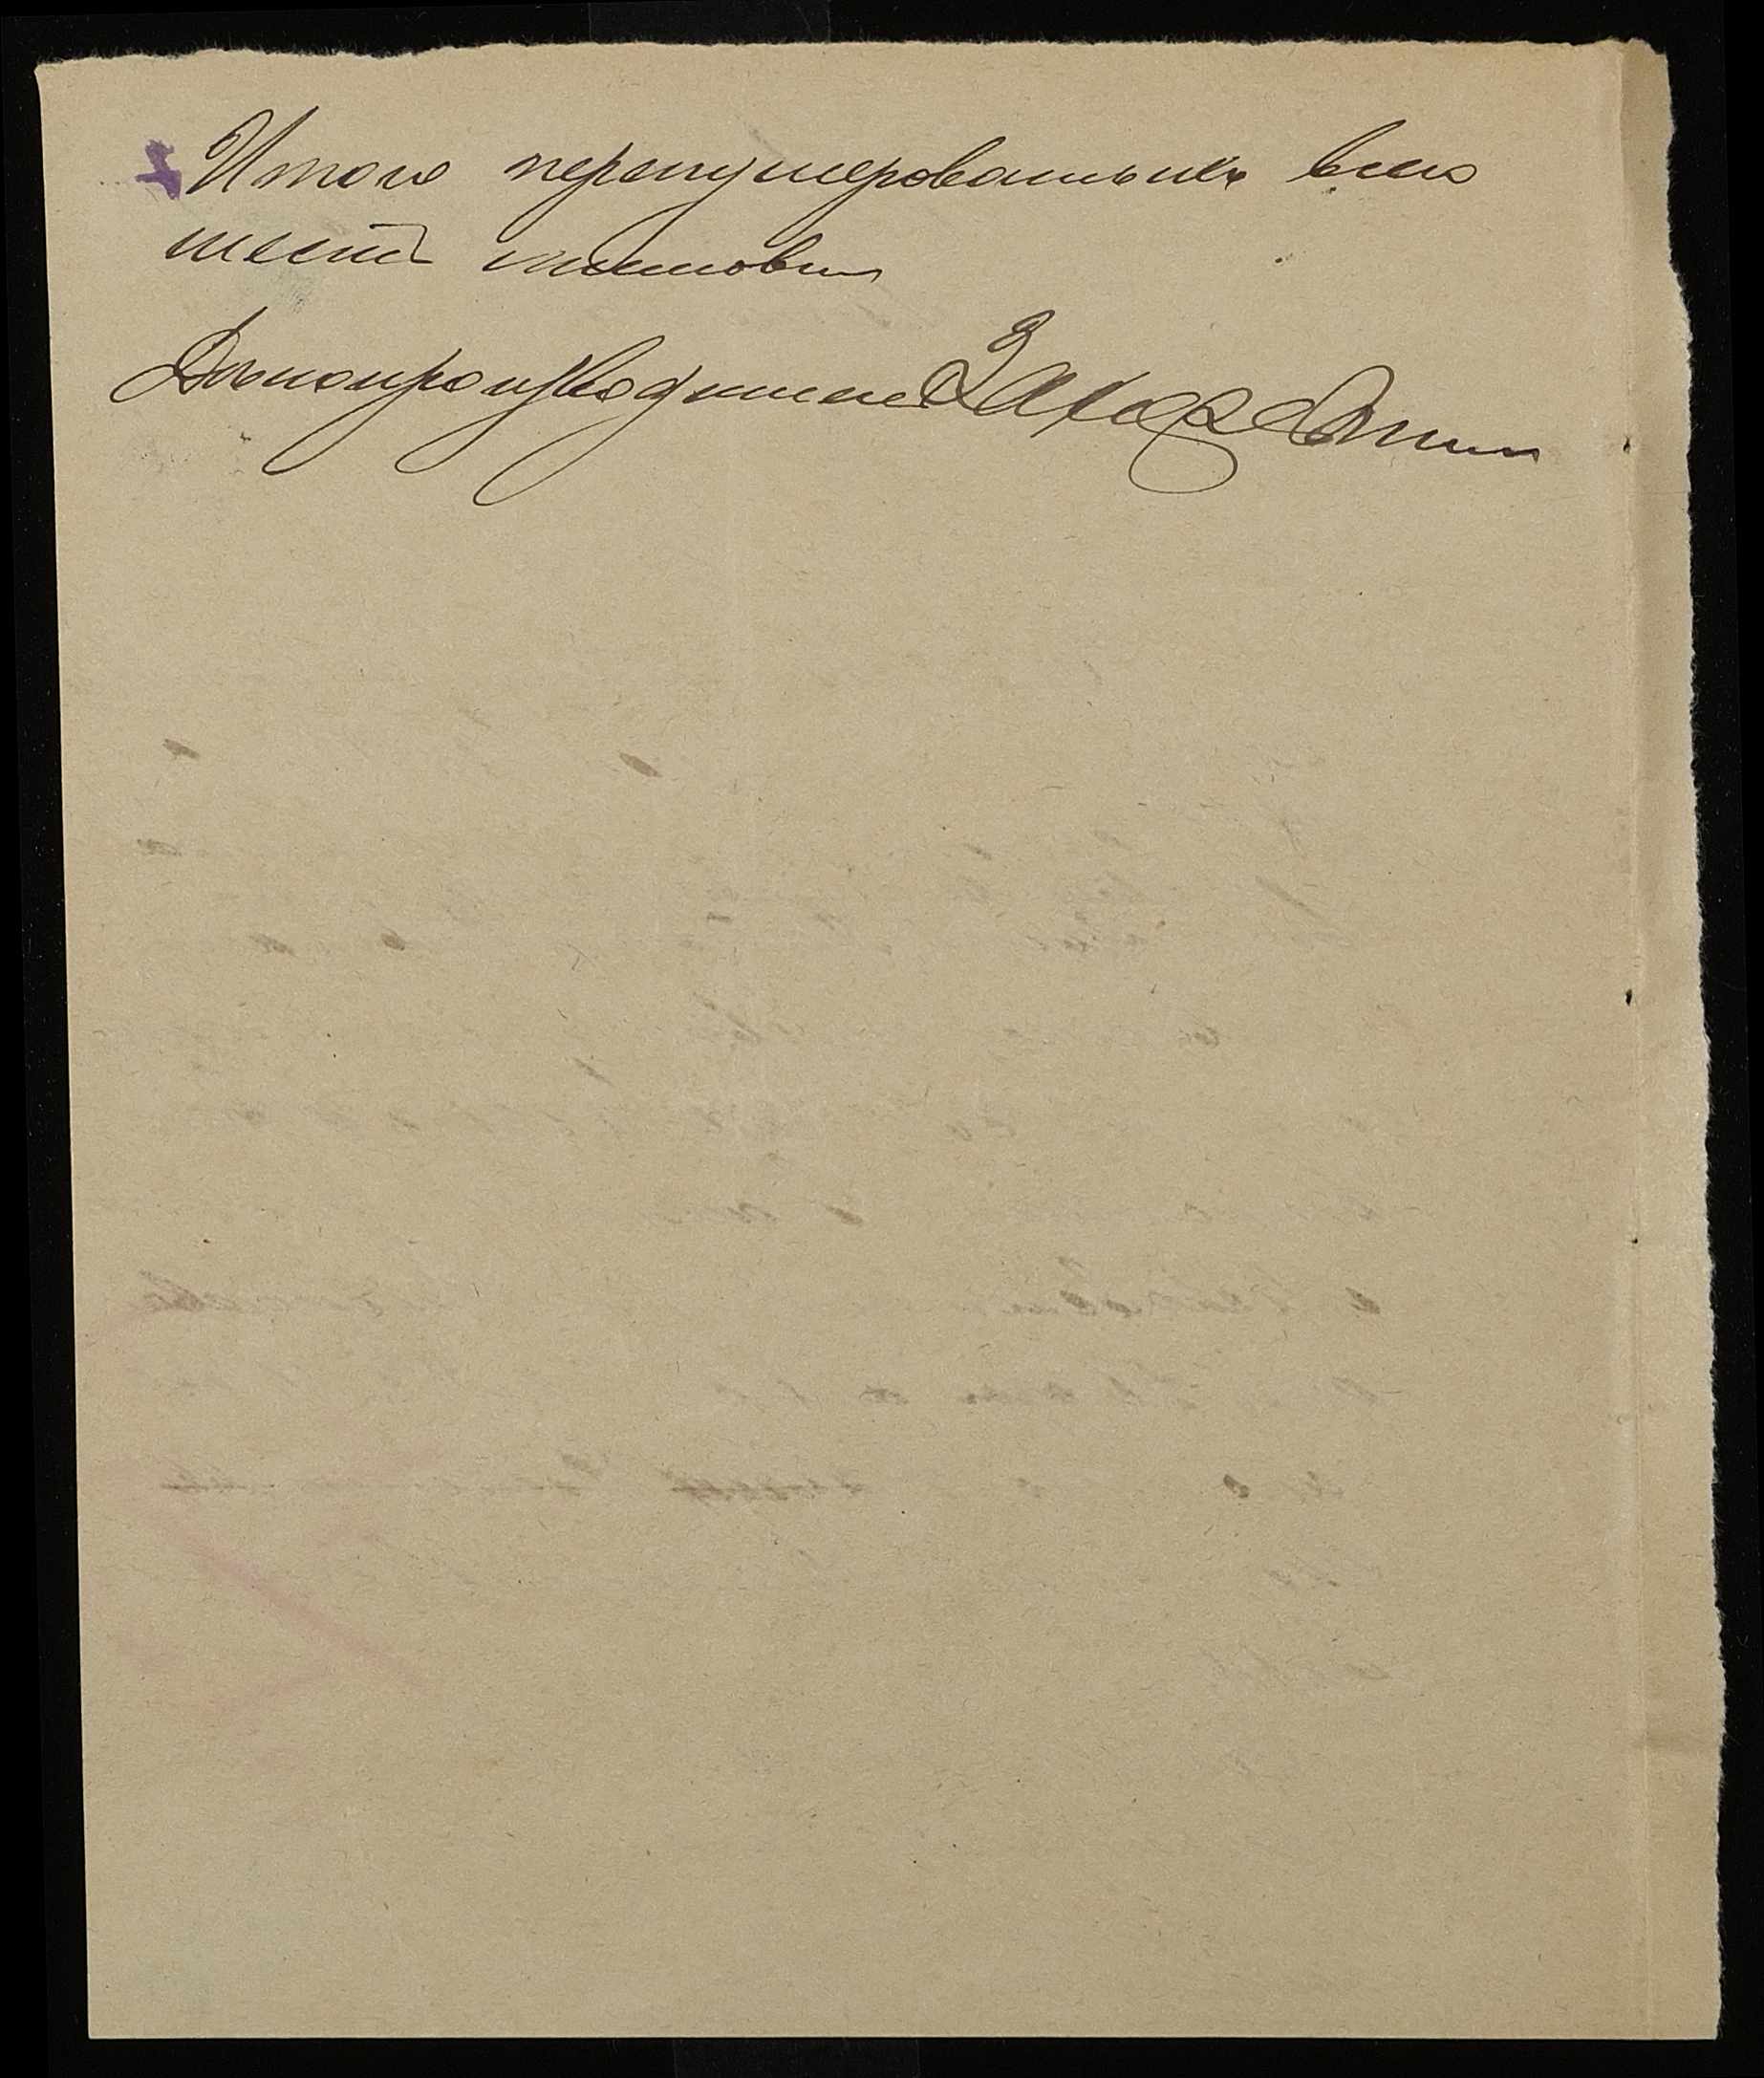 Итого перенумерованных всего
шесть листов
Делопроизводитель